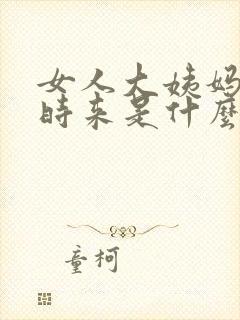 女人大姨妈
时来是什麼
童柯